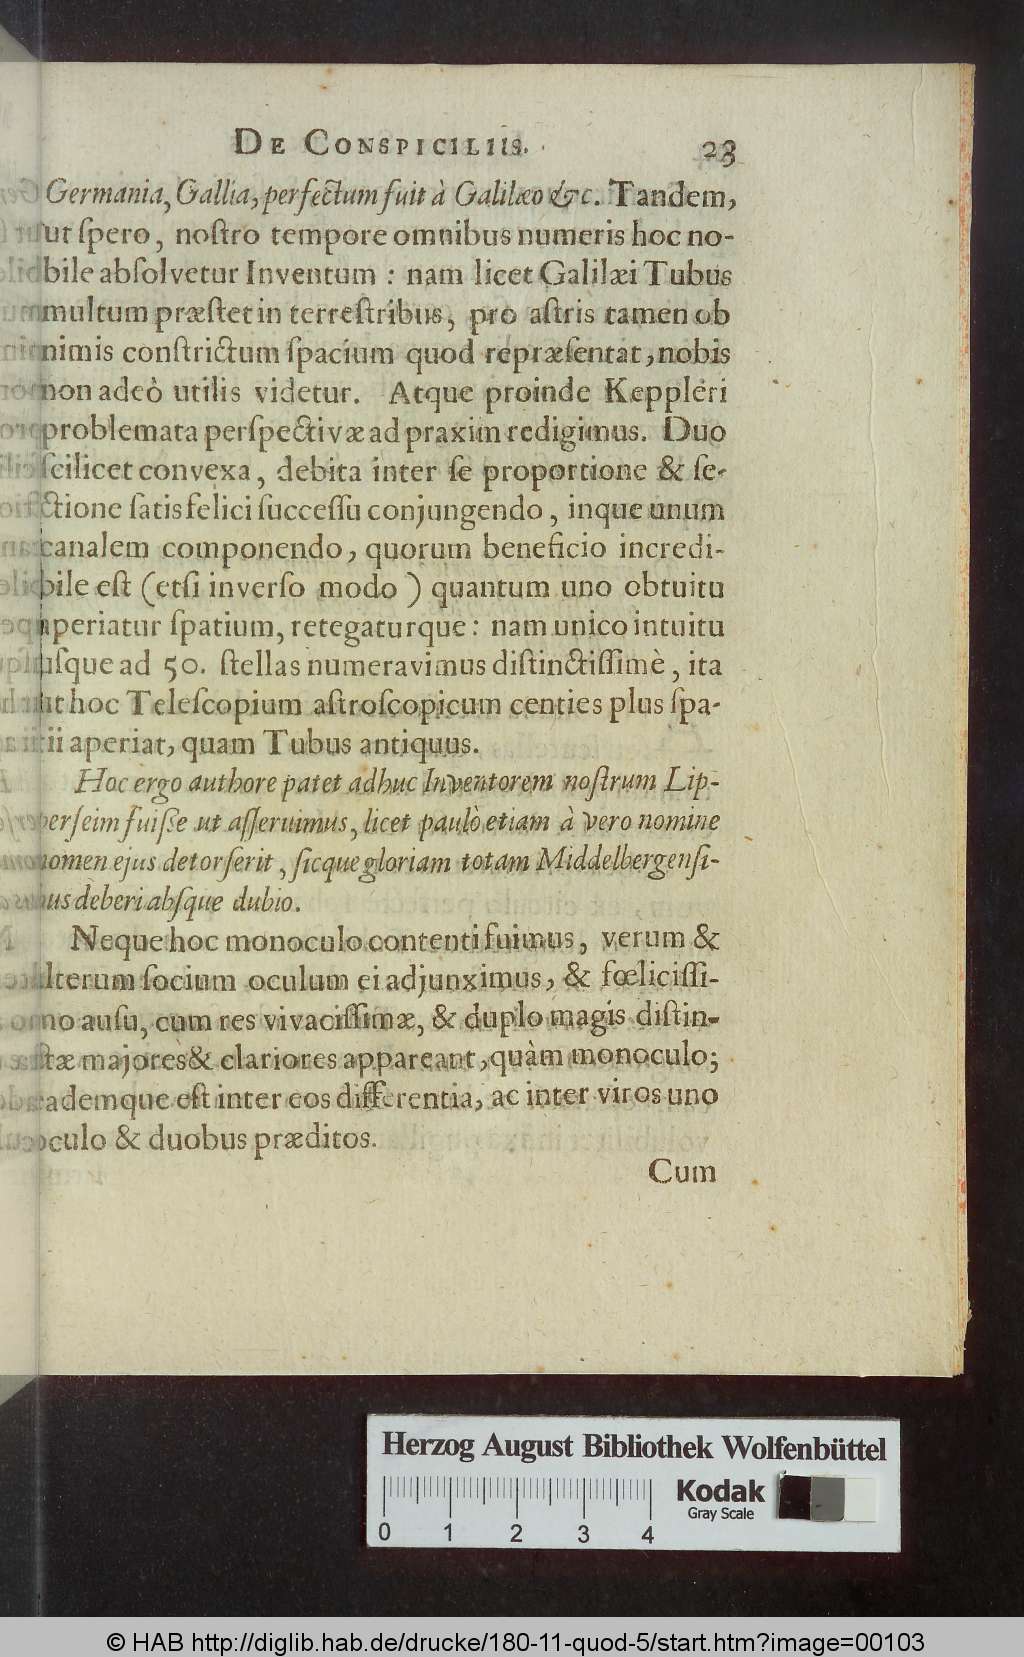 DE CONSPICILIIS. 23
Germania, Gallia, perfectum fuit à Galilæo &c. Tandem,
ut ſpero, noſtro tempore omnibus numeris hoc no-
bile abſolvetur Inventum : nam licet Galilæi Tubus
multum præſtet in terreſtribus, pro aſtris tamen ob
nimis conſtrictum ſpacium quod repræſentat, nobis
non adeò utilis videtur. Atque proinde Keppleri
problemata perſpectivæ ad praxim redigimus. Duo
ſcilicet convexa, debita inter ſe proportione & ſe-
ctione ſatis felici ſucceſſu conjungendo, inque unum
canalem componendo, quorum beneficio incredi-
bile eſt (etſi inverſo modo) quantum uno obtuitu
aperiatur ſpatium, retegaturque: nam unico intuitu
uſque ad 50. ſtellas numeravimus diſtinctiſſimè, ita
ut hoc Teleſcopium aſtroſcopicum centies plus ſpa-
tii aperiat, quam Tubus antiquus.
Hoc ergo authore patet adhuc Inventorem noſtrum Lip-
perſeim fuiſſe ut aſſeruimus, licet paulò etiam à vero nomine
nomen ejus detorſerit, ſicque gloriam totam Middelbergenſi-
bus deberi abſque dubio.
Neque hoc monoculo contenti fuimus, verum &
alterum ſocium oculum ei adjunximus, & fœliciſſi-
mo auſu, cum res vivaciſſimæ, & duplo magis diſtin-
ctæ majores & clariores appareant, quàm monoculo;
eademque eſt inter eos differentia, ac inter viros uno
oculo & duobus præditos.
Cum
Herzog August Bibliothek Wolfenbüttel
Kodak
Gray Scale
0 1 2 3 4
© HAB http://diglib.hab.de/drucke/180-11-quod-5/start.htm?image=00103